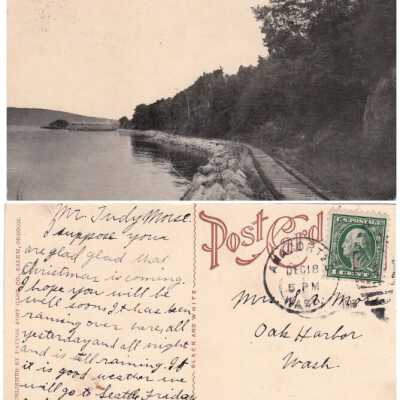 Mr. Judy Morse.
I suppose your
are glad glad that
Christmas is coming.
I hope you will be
well soon. It has been
raining over here, all
yesterday and all night
and is still raining. If
it is good weather we
will go to Seattle, Friday
PUBLISHED BY PATTON POST CARD CO., SALEM, OREGON.
BLACK AND WHITE
Post Card
ANACORTES
DEC 18
5 PM
WASH.
U.S. POSTAGE
1 CENT 1
Mrs.
Oak Harbor
Wash.